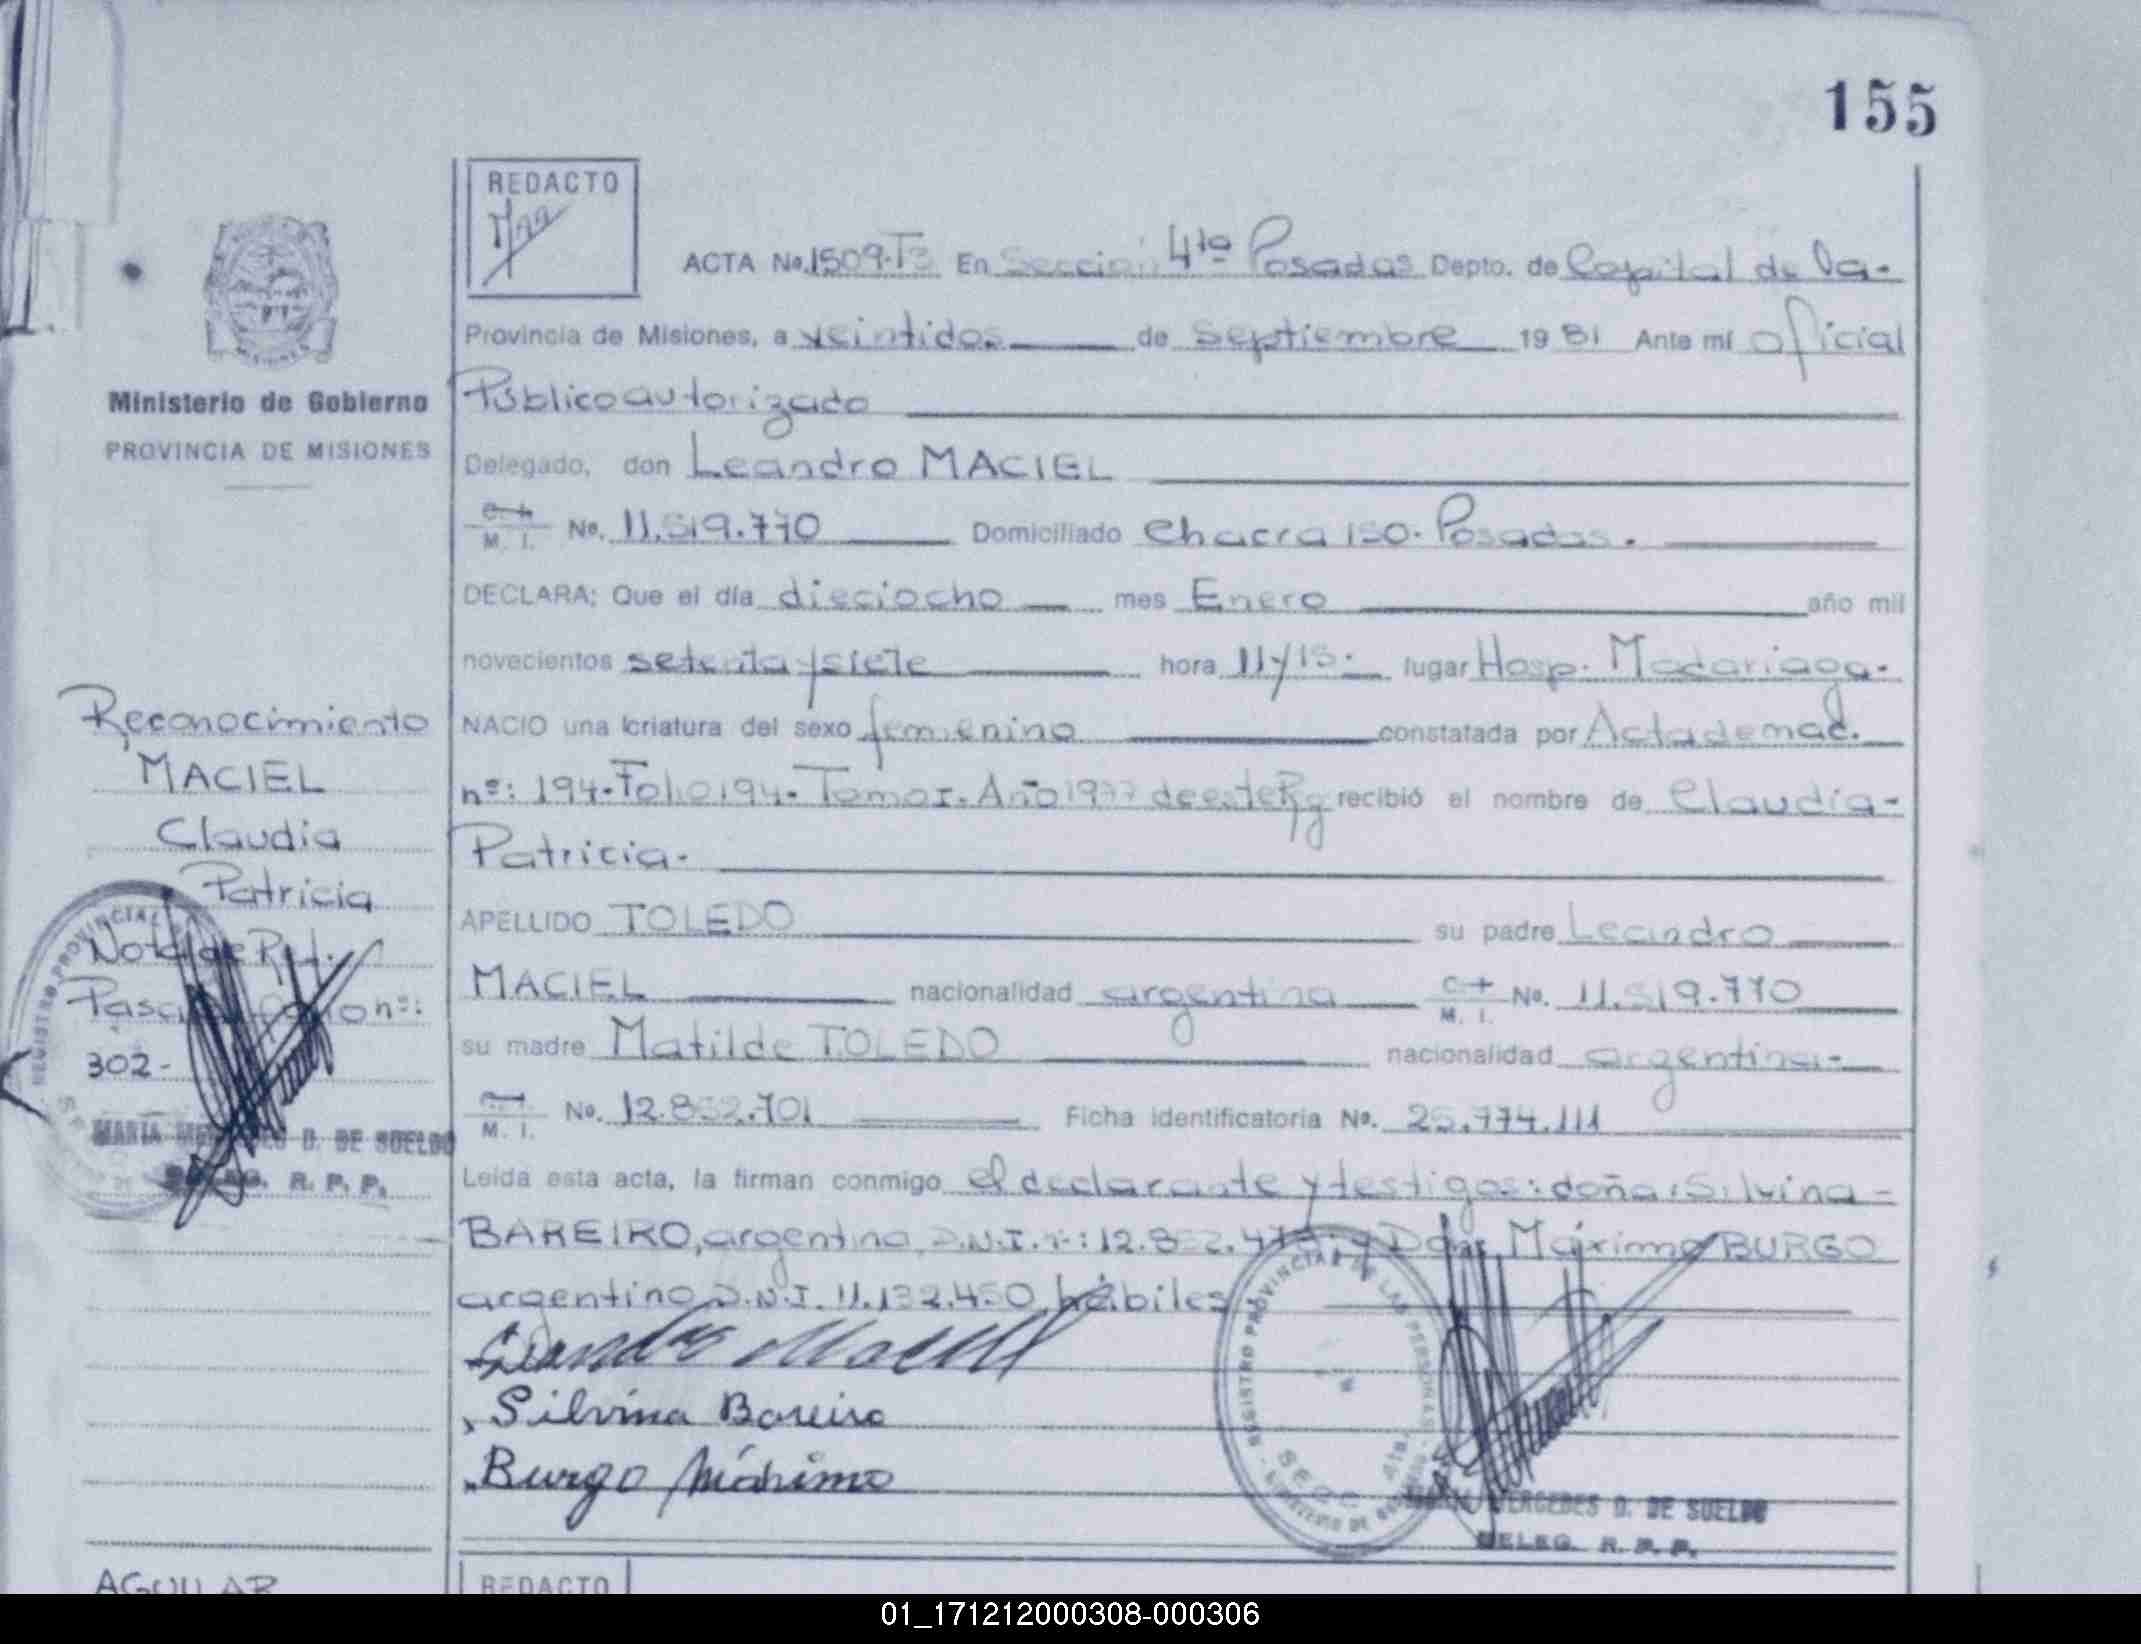 155
REDACTO
ACTA No. 1509-T3 En Sección 4ta Posadas Depto. de Capital de la-
Provincia de Misiones, a veintidos de Septiembre 1981 Ante mí oficial
Público autorizado
Ministerio de Gobierno
PROVINCIA DE MISIONES
Delegado, don Leandro MACIEL
M. I. No. 11.519.770 Domiciliado Chacra 150. Posadas.
DECLARA: Que el día dieciocho mes Enero año mil
novecientos setenta y siete hora 11 y 15. lugar Hosp. Madariaga.
NACIO una criatura del sexo femenino constatada por Acta de mad.
nº: 194-Folio 194-Tomo I. Año 1977 de este Rg recibió el nombre de Claudia-
Patricia.
APELLIDO TOLEDO su padre Leandro
MACIEL nacionalidad argentina M. I. No. 11.519.770
su madre Matilde TOLEDO nacionalidad argentina-
M. I. No. 12.852.701 Ficha identificatoria No. 25.774.111
Leída esta acta, la firman conmigo el declarante y testigos: doña: Silvina-
BAREIRO, argentina D.N.I. nº: 12.852. Don Máximo BURGO
argentino D.N.I. 11.132.450 hábiles
Leandro Maciel
Silvina Bareiro
Burgo Máximo
REGISTRO PROVINCIAL DE LAS PERSONAS
SECC. 4ta.
MERCEDES D. DE SUELDO
DELEG. R. P. P.
Reconocimiento
MACIEL
Claudia
Patricia
Nota de Ref.
nº:
302-
REGISTRO PROVINCIAL
MARIA MERCEDES D. DE SUELDO
DELEG. R. P. P.
AGUILAR
REDACTO
01_171212000308-000306